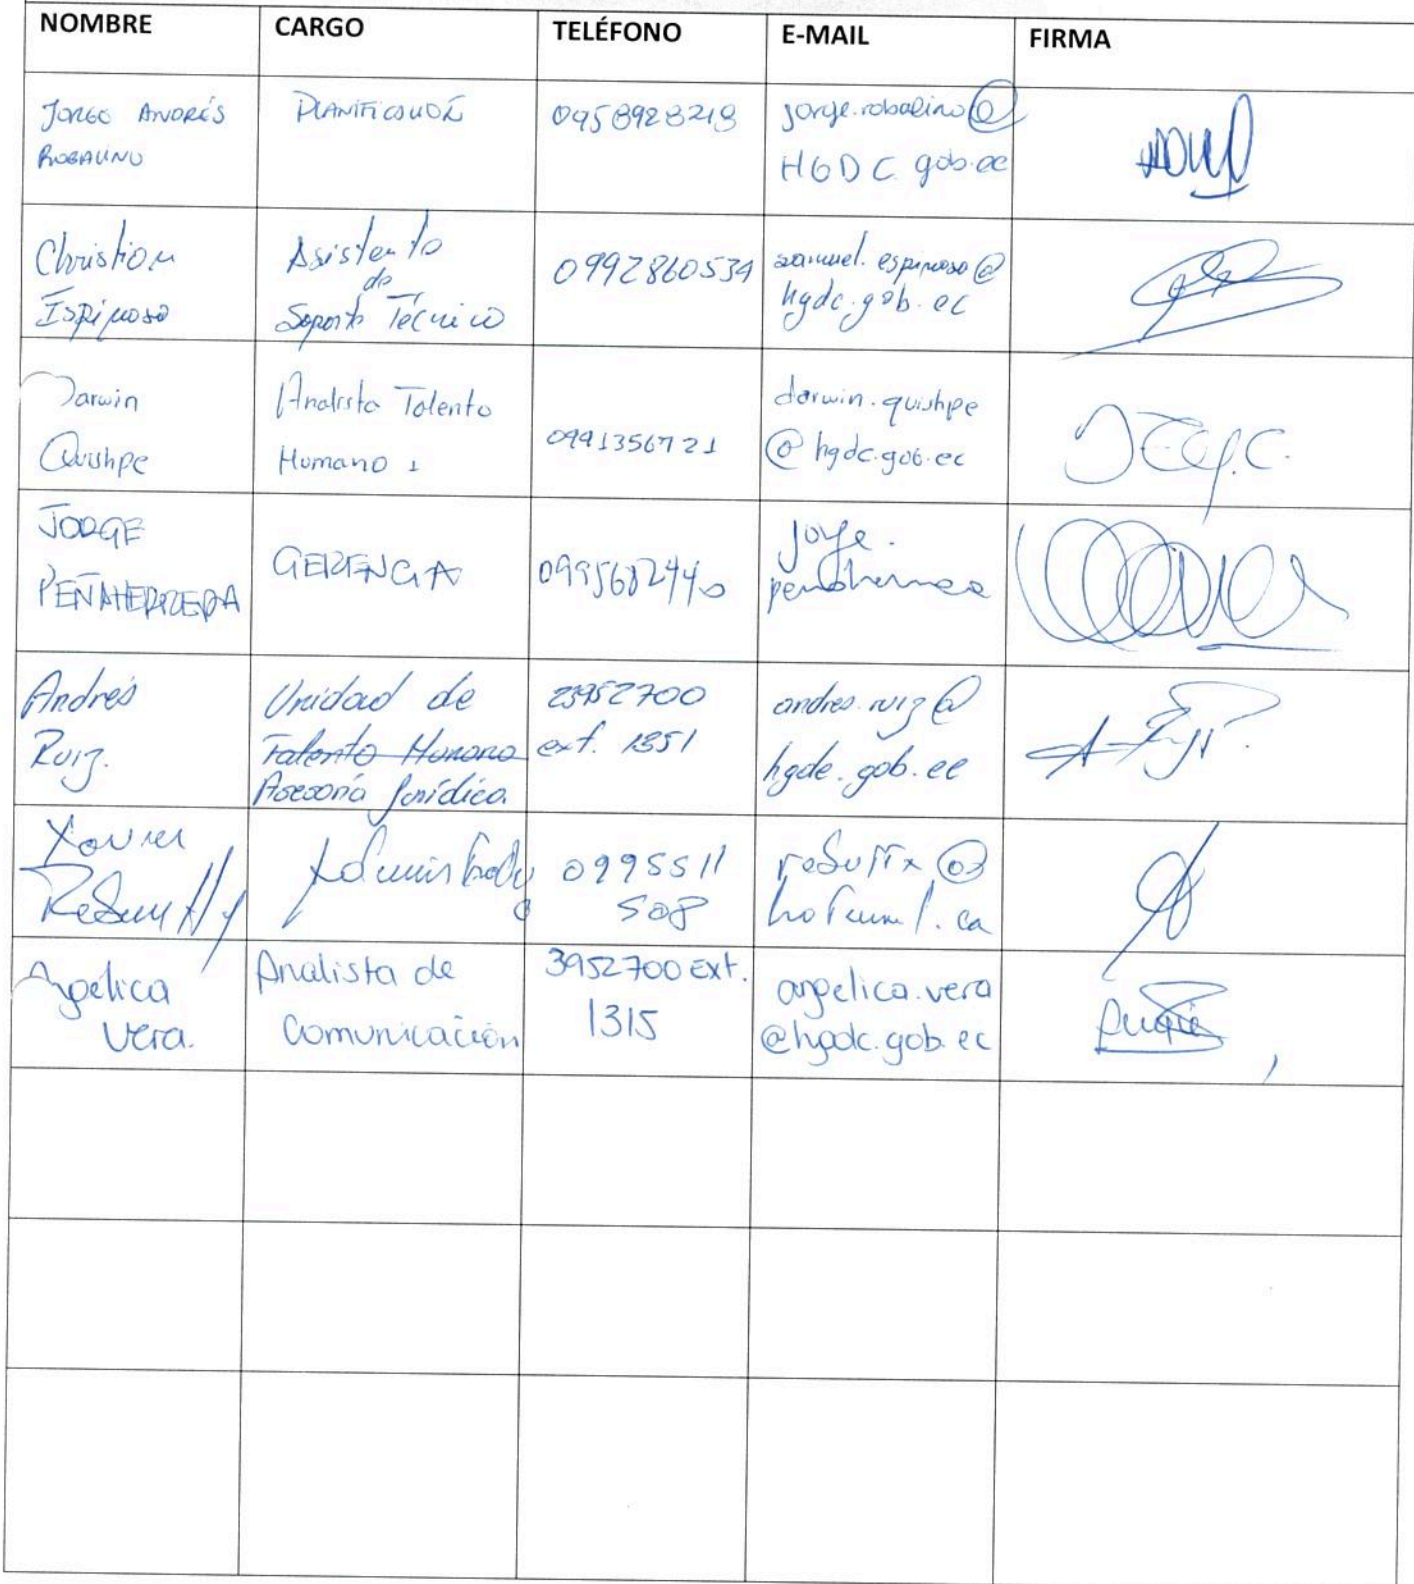 NOMBRE CARGO TELÉFONO E-MAIL FIRMA
JORGE ANDRÉS
ROBALINO
0958928218
jorge.robalino@
HGDC gob.ec
Christian
Espinosa
Asistente
de
Soporte Técnico
0992860534
samuel.espinosa@
hgdc.gob.ec
Darwin
Quishpe
Analista Talento
Humano 1
0991356721
darwin.quishpe
@hgdc.gob.ec
JORGE
PEÑAHERRERA
GERENCIA
jorge.
penaherrera
Andrés
Ruiz.
Unidad de
Talento Humano
Asesoría Jurídica.
23952700
ext. 1351
andres.ruiz@
hgdc.gob.ec
Xavier
0995511
508
Angelica
Vera.
Analista de
Comunicación
3952700 Ext.
1315
angelica.vera
@hgdc.gob.ec